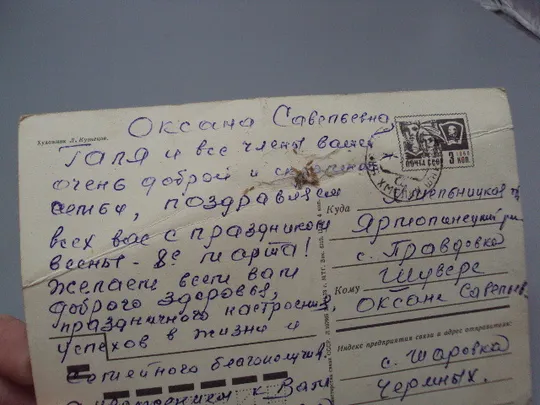 Художник Л. Кузнецов
Оксана Савельевна
Галя и все члены вашей
очень доброй и
семьи, поздравляем
всех вас с праздником
весны - 8е марта!
Желаем всем вам
доброго здоровья,
праздничного настроения
успехов в жизни и
семейного благополучия.
с уважением к Вам
ПОЧТА СССР
3 КОП
Хмельницкая
Куда
Ярмолинецкий р-н
с. Правдовка
Шуверс
Кому
Оксане Савельев
Индекс предприятия связи и адрес отправителя:
с. Шаровка
Черных.